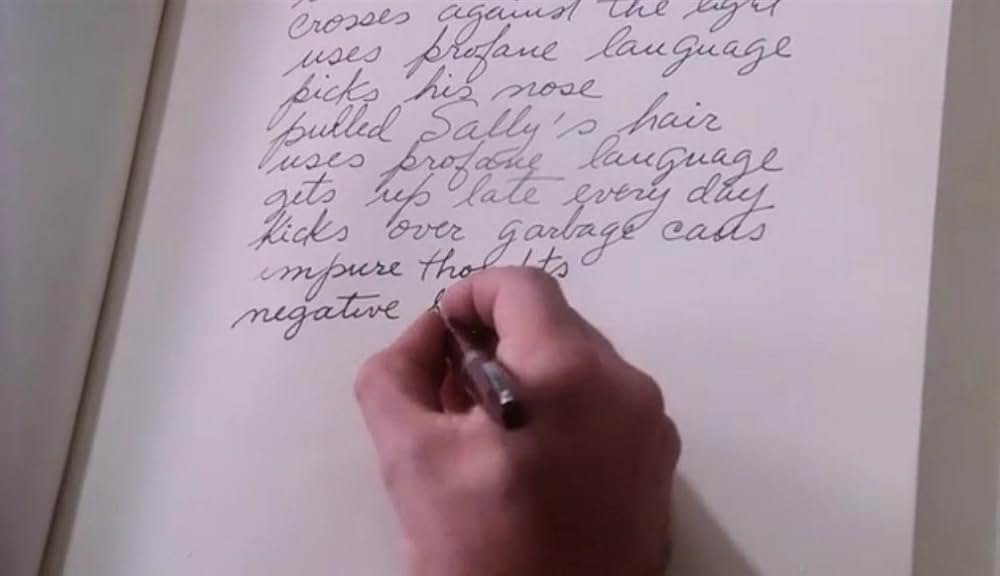 crosses against the light
uses profane language
picks his nose
pulled Sally's hair
uses profane language
gets up late every day
kicks over garbage cans
impure
negative